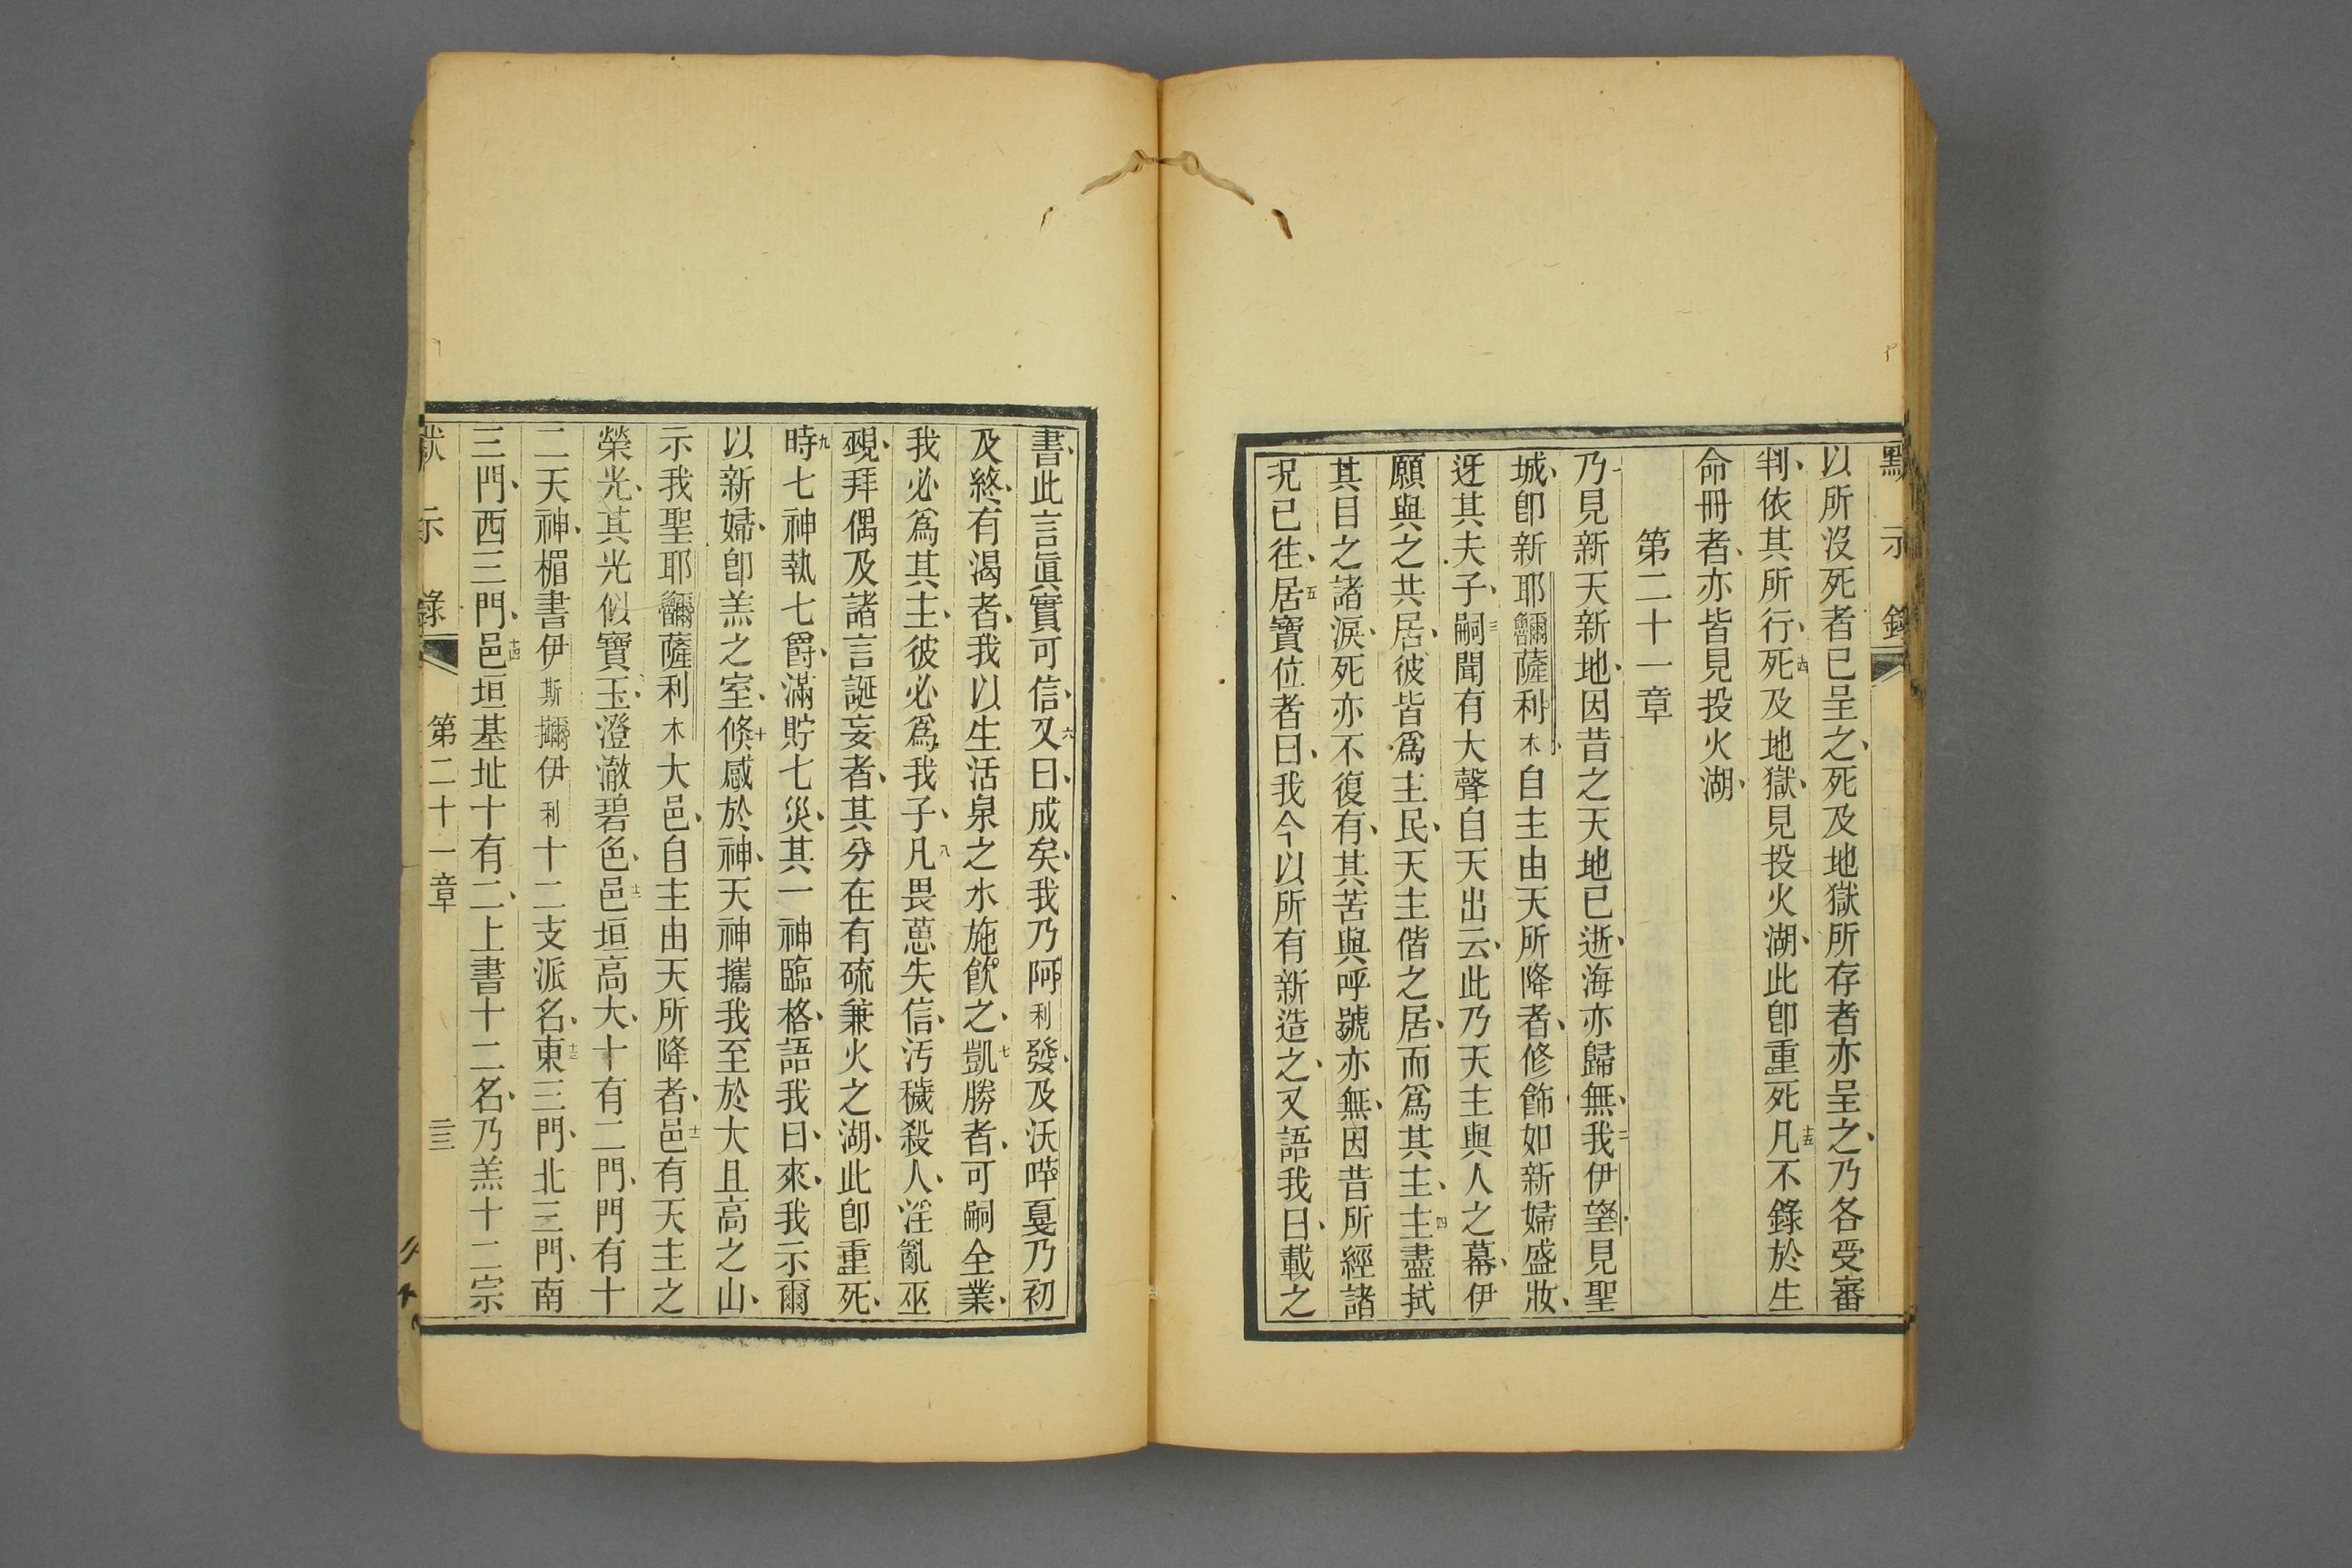 默示錄
以所沒死者已呈之、死及地獄所存者亦呈之、乃各受審
判、依其所行、十四死及地獄、見投火湖、此卽重死、十五凡不錄於生
命冊者、亦皆見投火湖、
第二十一章
一乃見新天新地、因昔之天地已逝、海亦歸無、二我伊望、見聖
城、卽新耶薩利木、自主由天所降者、修飾如新婦盛妝、
迓其夫子、三嗣聞有大聲自天出云、此乃天主與人之幕、伊
願與之共居、彼皆爲主民、天主偕之居、而爲其主、四主盡拭
其目之諸淚、死亦不復有、其苦與呼號亦無、因昔所經諸
況已往、五居寶位者曰、我今以所有新造之、又語我曰、載之
書、此言眞實可信、六又曰、成矣、我乃阿利發、及沃嘩戛乃初
及終、有渴者、我以生活泉之水施飮之、七凱勝者、可嗣全業、
我必爲其主、彼必爲我子、八凡畏葸失信、污穢殺人、淫亂巫
覡、拜偶及諸言誕妄者、其分在有硫兼火之湖、此卽重死、
九時七神執七爵、滿貯七災、其一神臨格、語我曰、來、我示爾
以新婦、卽羔之室、十倏感於神、天神攜我至於大且高之山、
示我聖耶薩利木大邑、自主由天所降者、十一邑有天主之
榮光、其光似寶玉、澄澈碧色、十二邑垣高大、十有二門、門有十
二天神、楣書伊斯伊利十二支派名、十三東三門、北三門、南
三門、西三門、十四邑垣基址十有二、上書十二名、乃羔十二宗
默示錄 第二十一章 三三